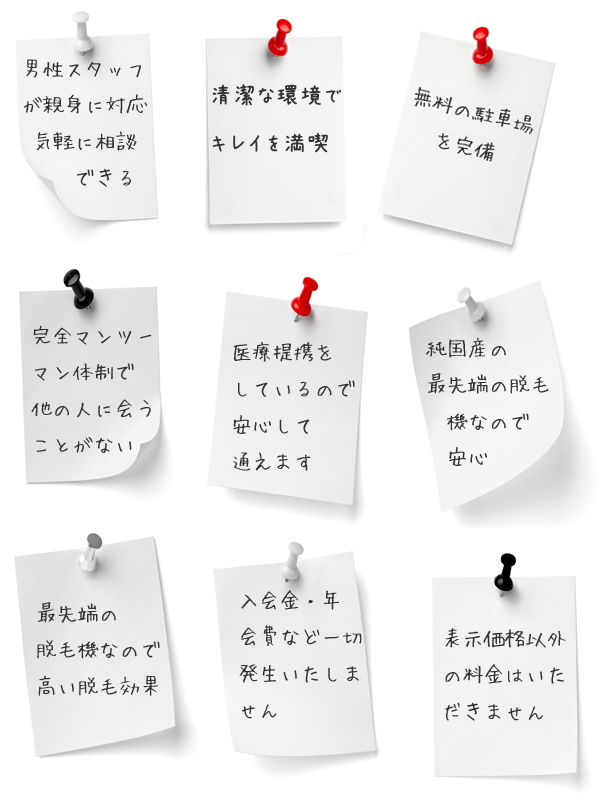 男性スタッフ
が親身に対応
気軽に相談
できる
清潔な環境で
キレイを満喫
無料の駐車場
を完備
完全マンツー
マン体制で
他の人に会う
ことがない
医療提携を
しているので
安心して
通えます
純国産の
最先端の脱毛
機なので
安心
最先端の
脱毛機なので
高い脱毛効果
入会金・年
会費など一切
発生いたしま
せん
表示価格以外
の料金はいた
だきません